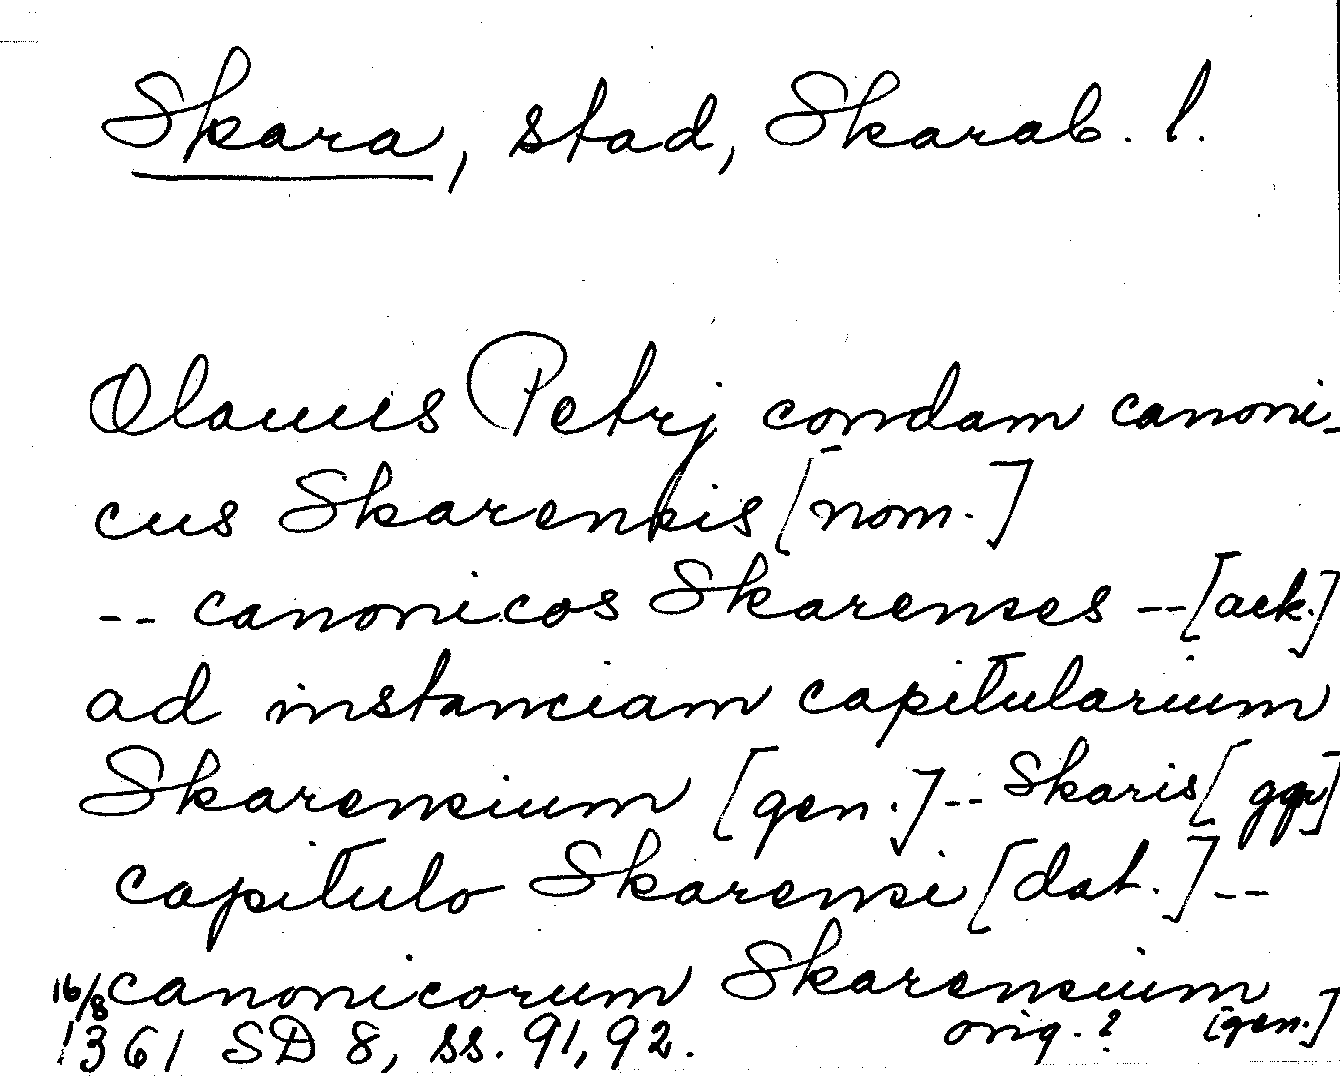 Skara, stad, Skarab. l.
Olauus Petrj condam canoni-
cus Skarensis [nom.]
-- canonicos Skarenses -- [ack.]
ad instanciam capitularium
Skarensium [gen.] -- Skaris [ggr]
capitulo Skarensi [dat.] --
canonicorum Skarensium [gen.]
16/8 1361 SD 8, ss. 91, 92. orig. ?